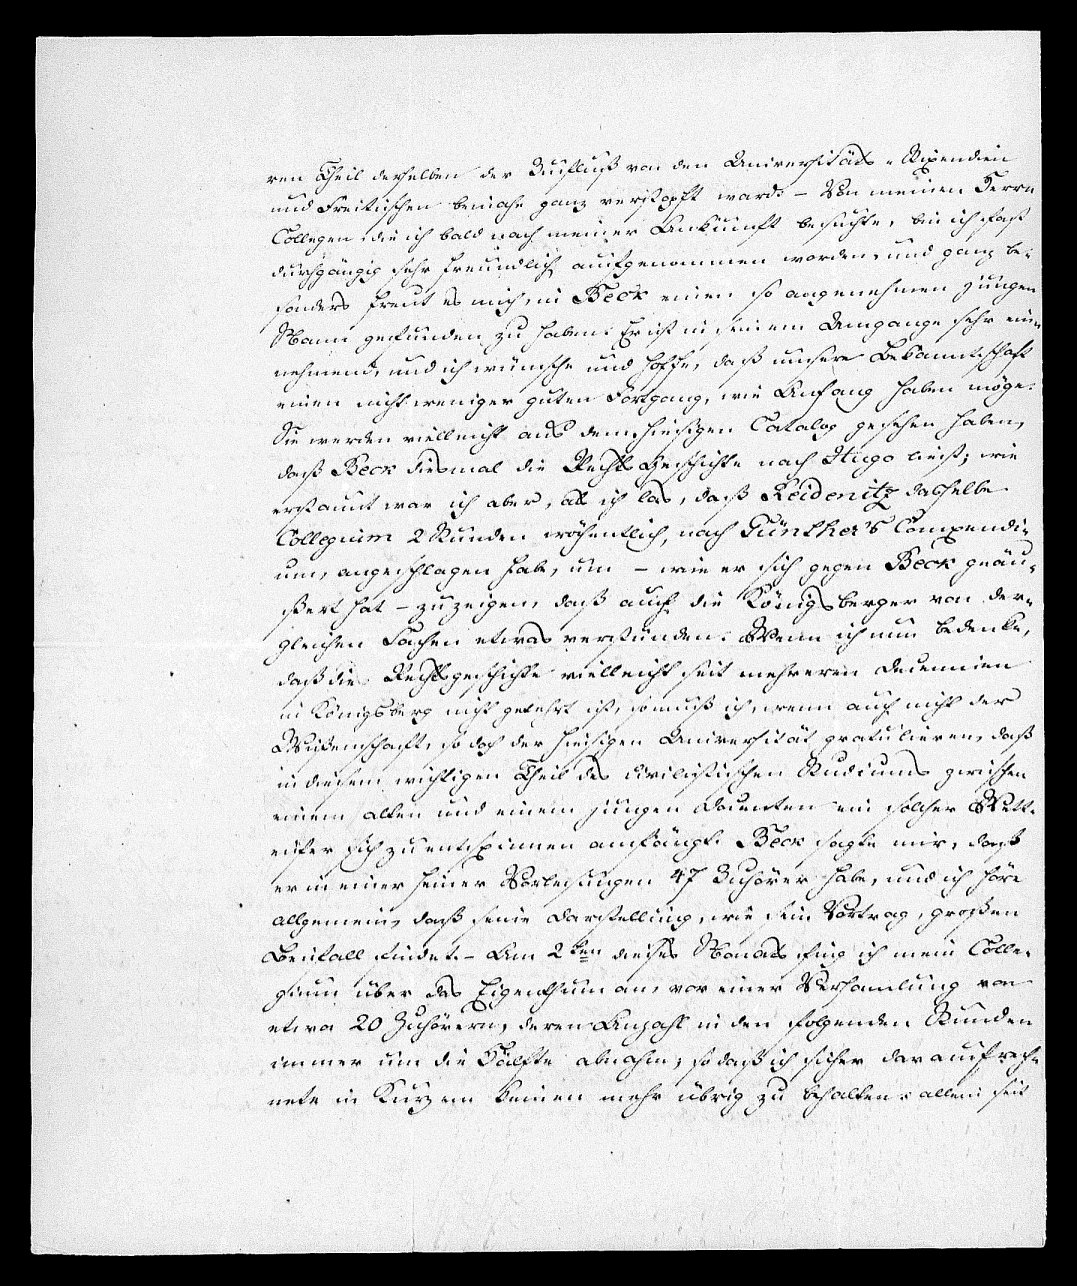 ren Theil derselben der Zufluß von den Universitäts-Stipendien
und Freitischen beinahe ganz verstopft ward. – Von meinen Herrn
Collegen, die ich bald nach meiner Ankunft besuchte, bin ich fast
durchgängig sehr freundlich aufgenommen worden, und ganz be-
sonders freut es mich, in Beck einen so angenehmen jungen
Mann gefunden zu haben. Er ist in seinem Umgange sehr ein-
nehmend, und ich wünsche und hoffe, daß unsere Bekanntschaft
einen nicht weniger guten Fortgang, wie Anfang haben möge.
Sie werden vielleicht aus dem hiesigen Catalog gesehen haben,
daß Beck diesmal die Rechtsgeschichte nach Hugo liest; wie
erstaunt war ich aber, als ich las, daß Reidenitz dasselbe
Collegium 2 Stunden wöchentlich, nach Günther's Compendi-
um, angeschlagen habe, um – wie er sich gegen Beck geäu-
ßert hat – zu zeigen, daß auch die Königsberger von der-
gleichen Sachen etwas verstünden. Wenn ich nun bedenke,
daß die Rechtsgeschichte vielleicht seit mehreren Decennien
in Königsberg nicht gelehrt ist, so muß ich, wenn auch nicht der
Wissenschaft, so doch der hiesigen Universität gratulieren, daß
in diesem wichtigen Theil des civilistischen Studiums zwischen
einem alten und einem jungen Docenten ein solcher Wett-
eifer sich zu entspinnen anfängt. Beck sagte mir, daß
er in einer seiner Vorlesungen 47 Zuhörer habe, und ich höre
allgemein, daß seine Darstellung, wie sein Vortrag, großen
Beifall findet. – Am 2ten dieses Monats fing ich mein Colle-
gium über das Eigenthum an, vor einer Versamlung von
etwa 20 Zuhörern, deren Anzahl in den folgenden Stunden
immer um die Hälfte abnahm; so daß ich sicher darauf rech-
nete in Kurzem keinen mehr übrig zu behalten: allein seit